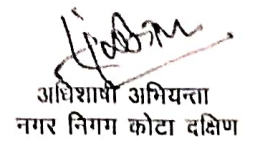 अधिशाषी अभियन्ता
नगर निगग कोटा दक्षिण